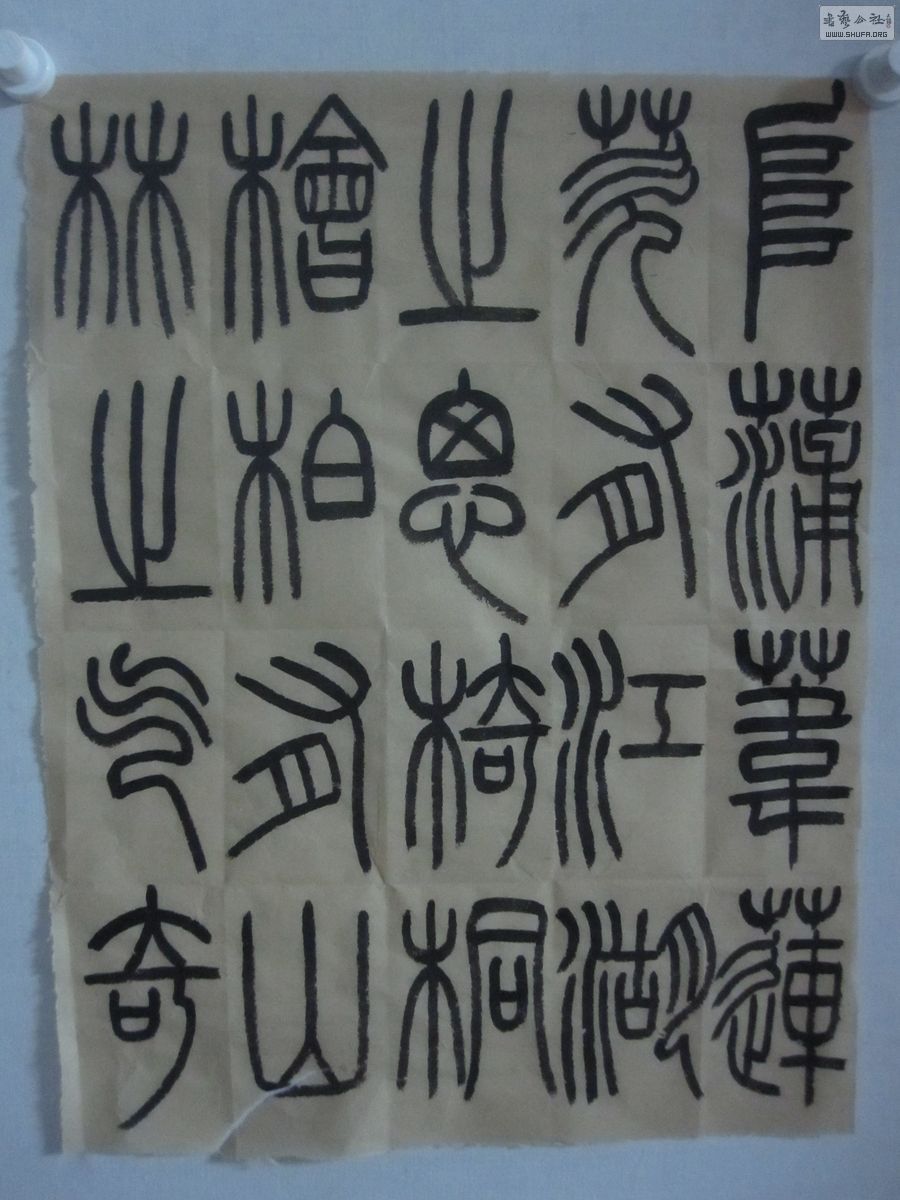 阜蒲葦蓮
芡有江湖
之思椅桐
檜柏有山
林之气奇
書藝公社
WWW.SHUFA.ORG